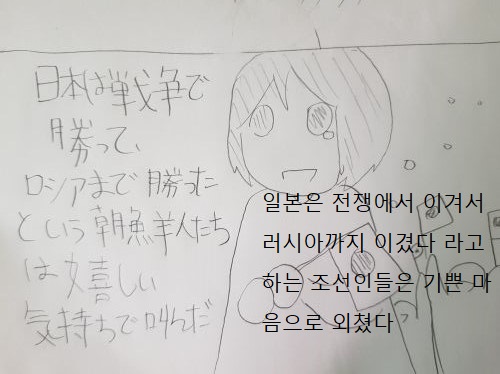 日本は戦争で
勝って、
ロシアまで勝った
という朝鮮人たち
は嬉しい
気持ちで叫んだ
일본은 전쟁에서 이겨서
러시아까지 이겼다 라고
하는 조선인들은 기쁜 마
음으로 외쳤다